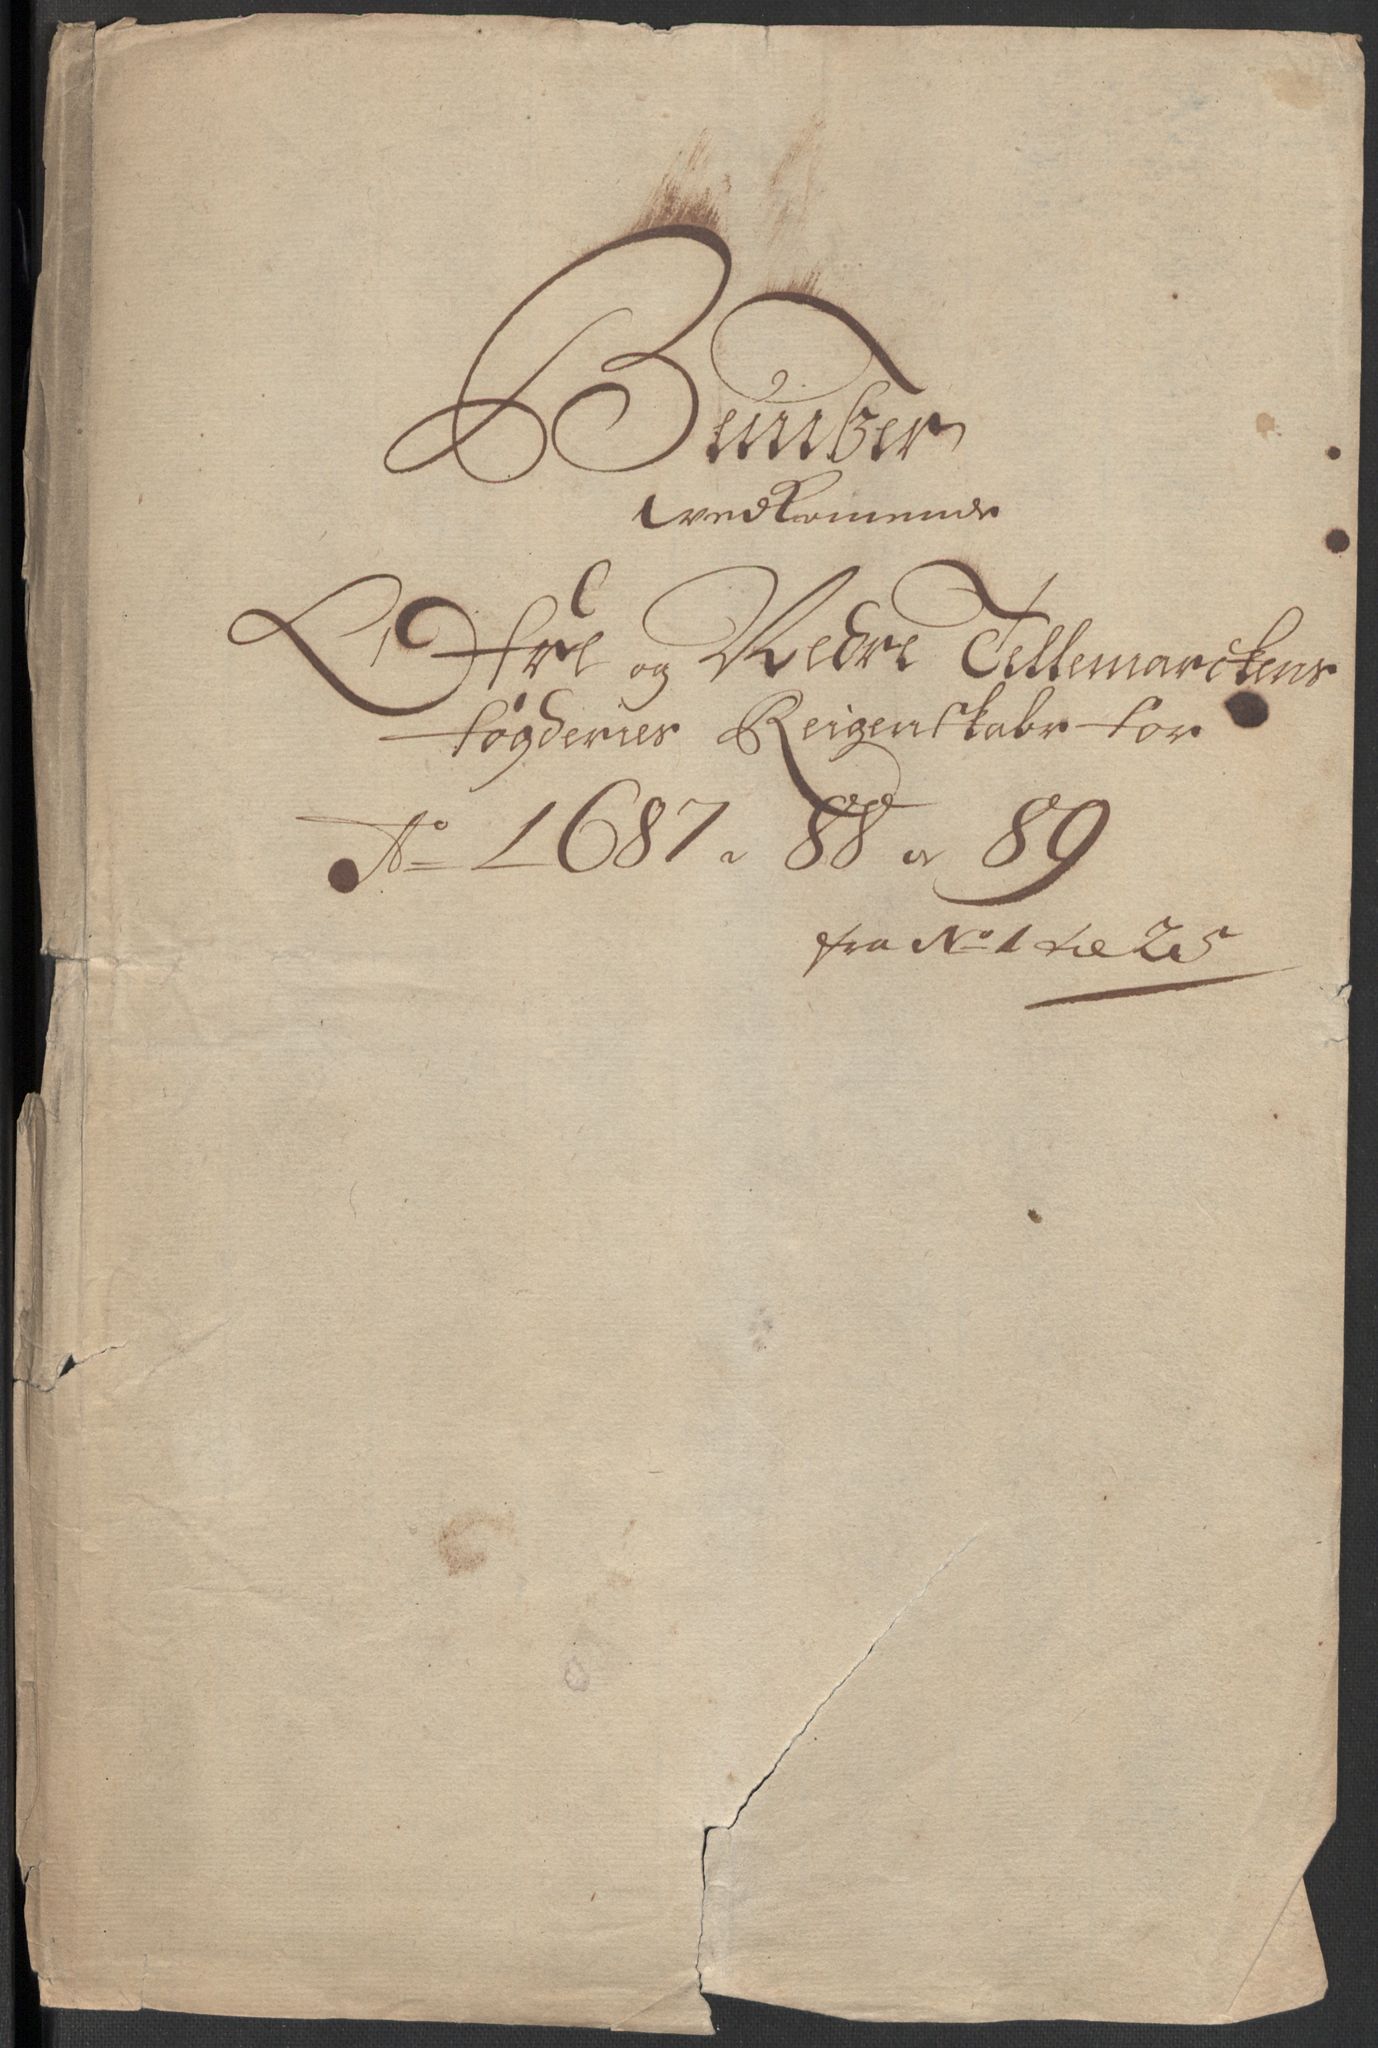 Beviiser
vedkommende
Øfre og Nedre Tellemarckens
fógderies Reigenskabr for
Ao 1687. 88 oc 89
fra No 1 til 25